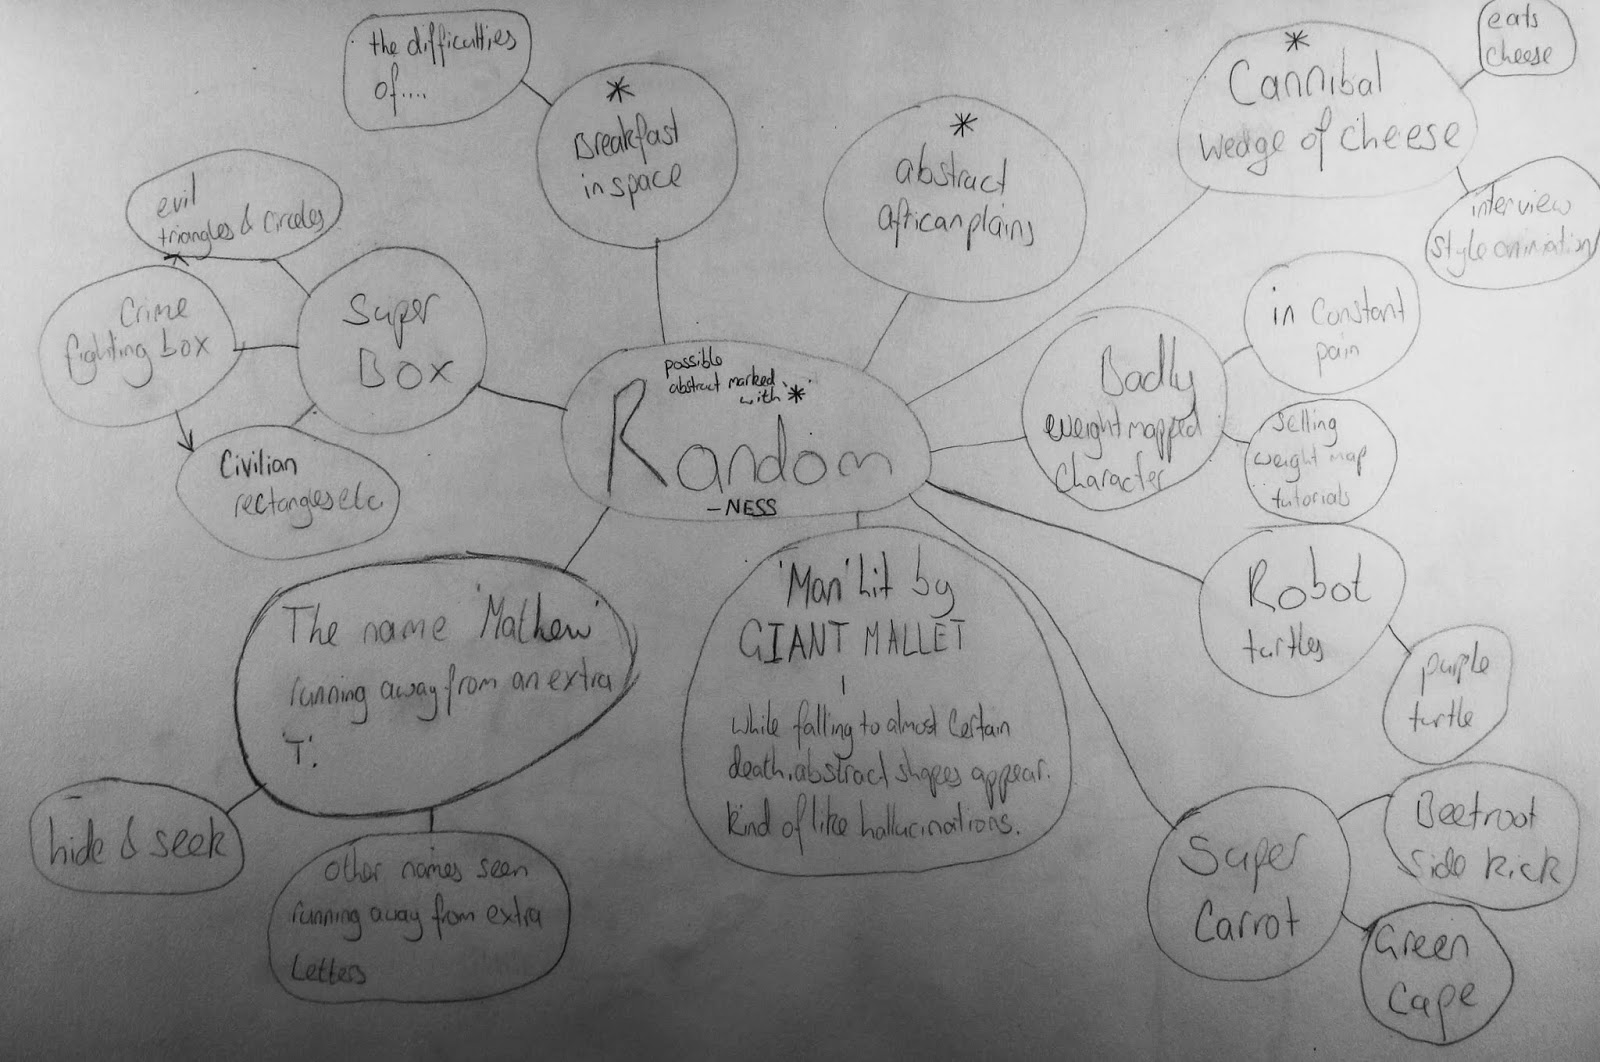 the difficulties
of....
*
Breakfast
in space
*
abstract
african plains
*
Cannibal
wedge of cheese
eats
cheese
interview
style animation
evil
triangles & circles
Crime
fighting box
Super
Box
Civilian
rectangles etc
possible
abstract marked
with '*'
Random
-NESS
Badly
weight mapped
character
in constant
pain
selling
weight map
tutorials
Robot
turtles
purple
turtle
The name 'Mathew'
running away from an extra
'T'.
hide & seek
other names seen
running away from extra
letters
'Man' hit by
GIANT MALLET
while falling to almost certain
death. abstract shapes appear.
kind of like hallucinations.
Super
Carrot
Beetroot
Side kick
Green
Cape